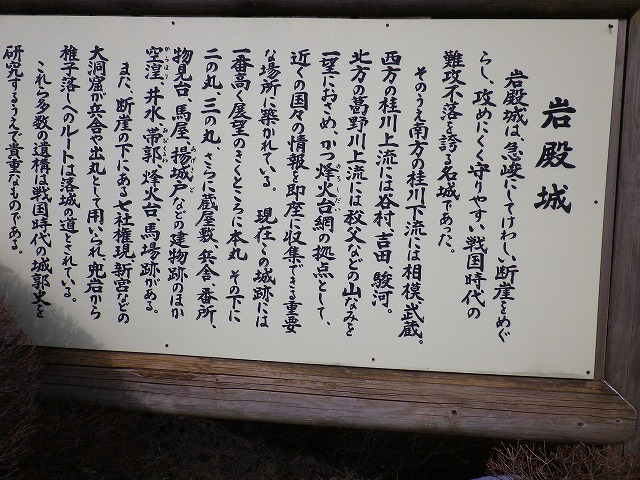 岩殿城
岩殿城は、急峻にしてけわしい断崖をめぐ
らし、攻めにくく守りやすい戦国時代の
難攻不落を誇る名城であった。
そのうえ南方の桂川下流には相模、武蔵。
西方の桂川上流には谷村、吉田、駿河。
北方の葛野川上流には秩父などの山なみを
一望におさめ、かつ烽火台網の拠点として、
近くの国々の情報を即座に収集できる重要
な場所に築かれている。 現在この城跡には
一番高く展望のきくところに本丸、その下に
二の丸、三の丸、さらに蔵屋敷、兵舎、番所、
物見台、馬屋、揚城戸などの建物跡のほか
空湟、井水、帯郭、烽火台、馬場跡がある。
また、断崖の下にある七社権現、新宮などの
大洞窟が兵舎や出丸として用いられ、兜岩から
稚子落しへのルートは落城の道とされている。
これら多数の遺構は戦国時代の城郭史を
研究するうえで貴重なものである。